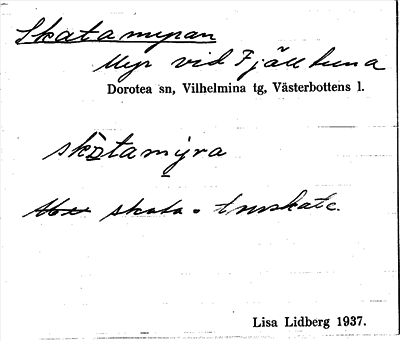 Skatamyran
Myr vid Fjälltuna
Dorotea sn, Vilhelmina tg, Västerbottens l.
skòtamýra
skata
Lisa Lidberg 1937.